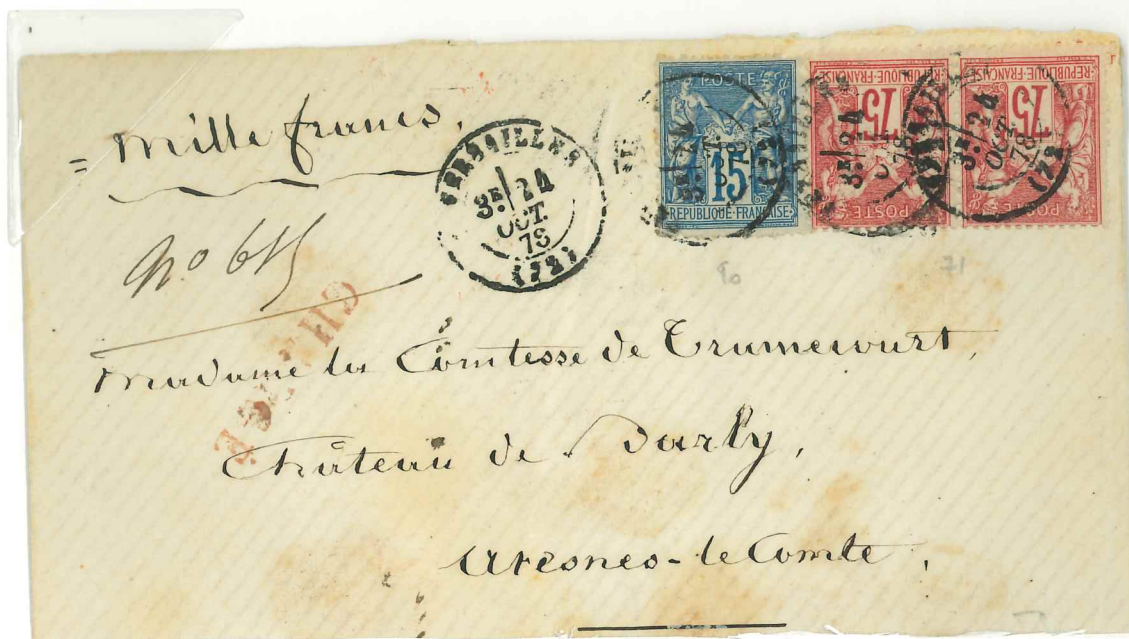 = Mille francs,
No 615
CHARGÉ
VERSAILLES
3E/ 24
OCT.
78
(72)
POSTE
15
REPUBLIQUE FRANÇAISE
REPUBLIQUE FRANÇAISE
75
POSTE
3E/ 24
78
REPUBLIQUE FRANÇAISE
75
POSTE
3E/ 24
OCT.
78
(72)
90
71
Madame la Comtesse de Tramecourt,
Château de Barly,
Avesnes-le Comte,